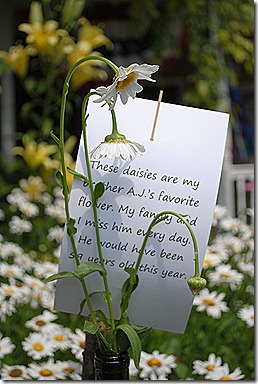 These daisies are my
ther A.J.'s favorite
flower. My family and
I miss him every day.
He would have been
years old this year.